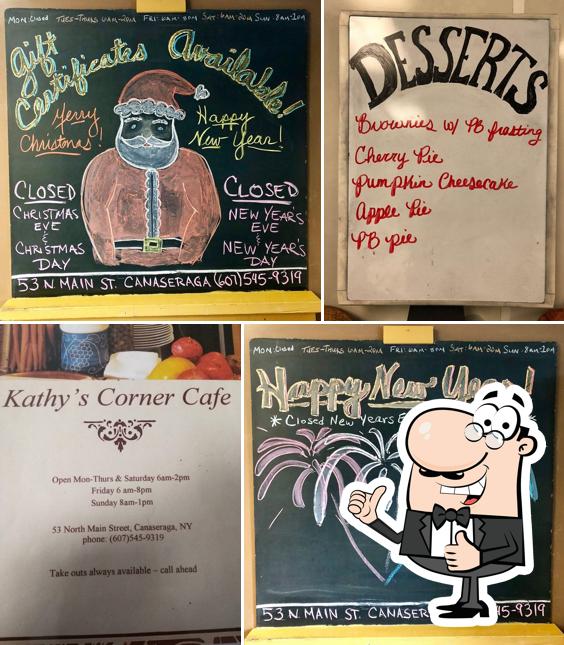 MON: Closed TUES-THURS 6AM-2PM FRI: 6AM-8PM SAT: 6AM-2PM SUN: 8AM-1PM
Gift
Certificates Available!
Merry
Christmas!
Happy
New Year!
CLOSED
CHRISTMAS
EVE
&
CHRISTMAS
DAY
CLOSED
NEW YEARS
EVE
&
NEW YEAR'S
DAY
53 N MAIN ST. CANASERAGA (607)545-9319
DESSERTS
Brownies w/ PB frosting
Cherry Pie
Pumpkin Cheesecake
Apple Pie
PB pie
Kathy's Corner Cafe
Open Mon-Thurs & Saturday 6am-2pm
Friday 6 am-8pm
Sunday 8am-1pm
53 North Main Street, Canaseraga, NY
phone: (607)545-9319
Take outs always available – call ahead
MON: Closed TUES-THURS 6AM-2PM FRI: 6AM-8PM SAT: 6AM-2PM SUN: 8AM-1PM
Happy New Year!
* Closed New Years
53 N MAIN ST. CANASER 45-9319